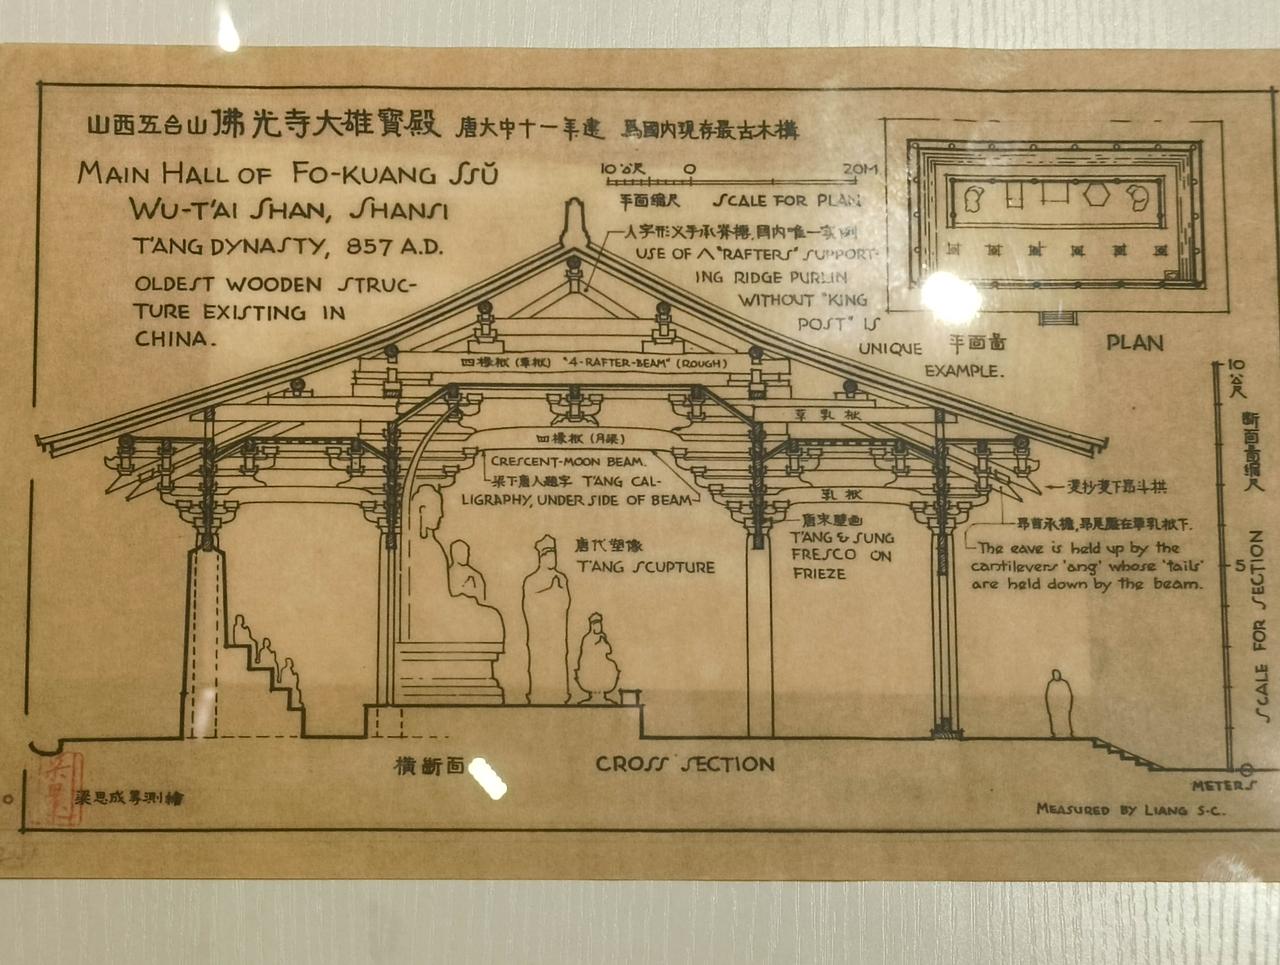 山西五台山佛光寺大雄寶殿 唐大中十一年建 爲國内現存最古木構
MAIN HALL OF FO-KUANG SSŬ
WU-T'AI SHAN, SHANSI
T'ANG DYNASTY, 857 A.D.
OLDEST WOODEN STRUC-
TURE EXISTING IN
CHINA.
10 公尺 0 20M
平面縮尺 SCALE FOR PLAN
人字形义手承脊槫,國内唯一実例
USE OF Λ "RAFTERS" SUPPORT-
ING RIDGE PURLIN
WITHOUT "KING
POST" IS
UNIQUE
EXAMPLE.
平面圖 PLAN
四椽栿(草栿) "4-RAFTER-BEAM" (ROUGH)
草乳栿
四椽栿(月梁)
CRESCENT-MOON BEAM.
梁下唐人題字 T'ANG CAL-
LIGRAPHY, UNDER SIDE OF BEAM
乳栿
唐宋壁画
T'ANG & SUNG
FRESCO ON
FRIEZE
唐代塑像
T'ANG SCUPTURE
双抄双下昂斗栱
昂首承檐,昂尾壓在草乳栿下.
The eave is held up by the
cantilevers 'ang' whose 'tails'
are held down by the beam.
10公尺
断面圖縮尺
5
SCALE FOR SECTION
0
METERS
橫断面 CROSS SECTION
梁思成等測繪
MEASURED BY LIANG S-C.